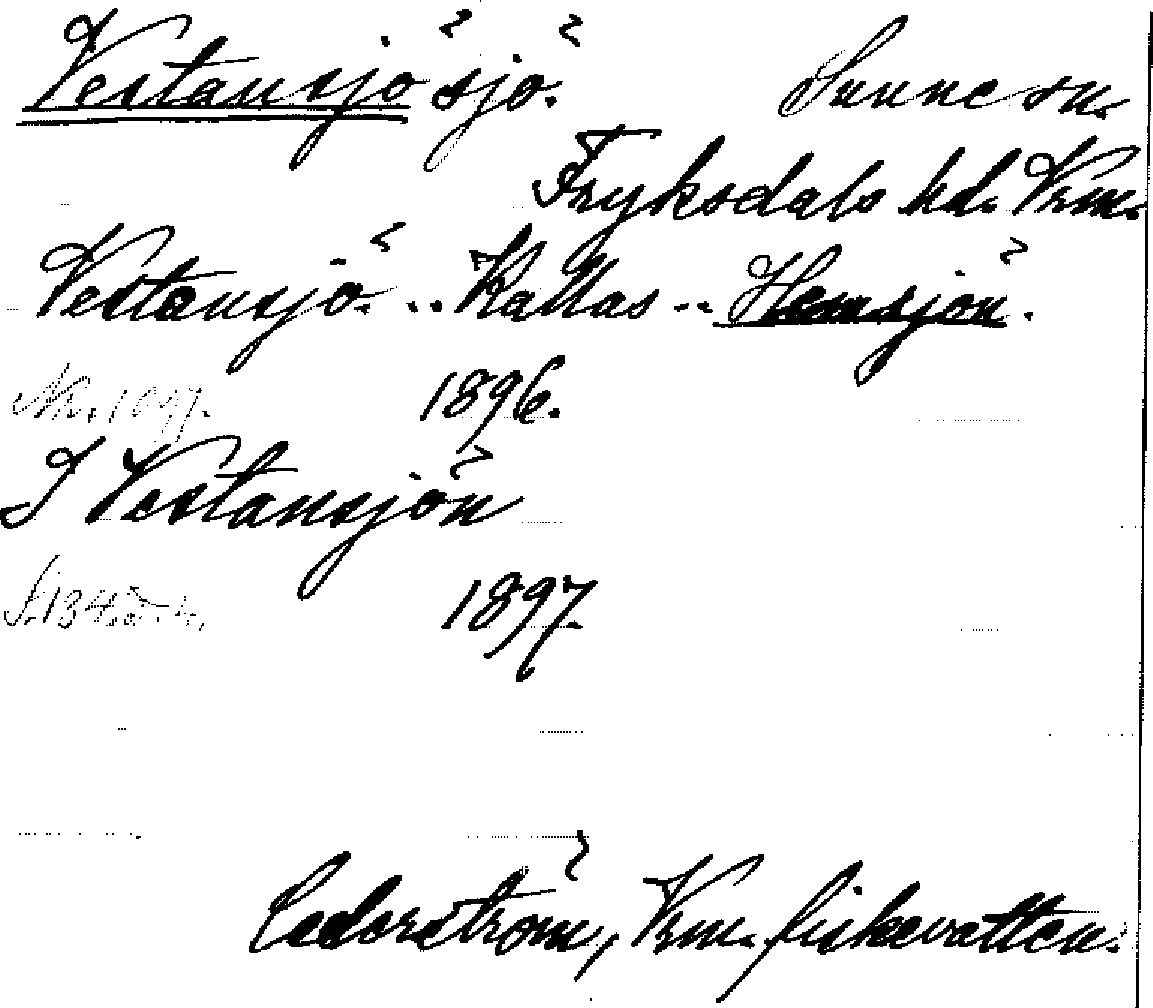 Vestansjö sjö. Sunne sn.
Fryksdals hd. Vrm.
Vestansjö. .. Kallas .. Hemsjön.
Nr. 1097. 1896.
I Vestansjön
S. 134. 1897.
Cederström, Vrm. fiskevatten.